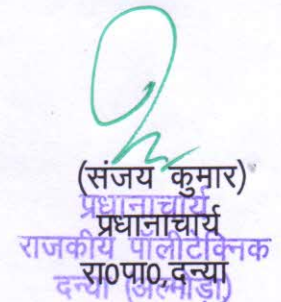 (संजय कुमार)
प्रधानाचार्य
प्रधानाचार्य
राजकीय पालीटेक्निक
रा0पा0,दन्या
दन्या (अल्मोड़ा)